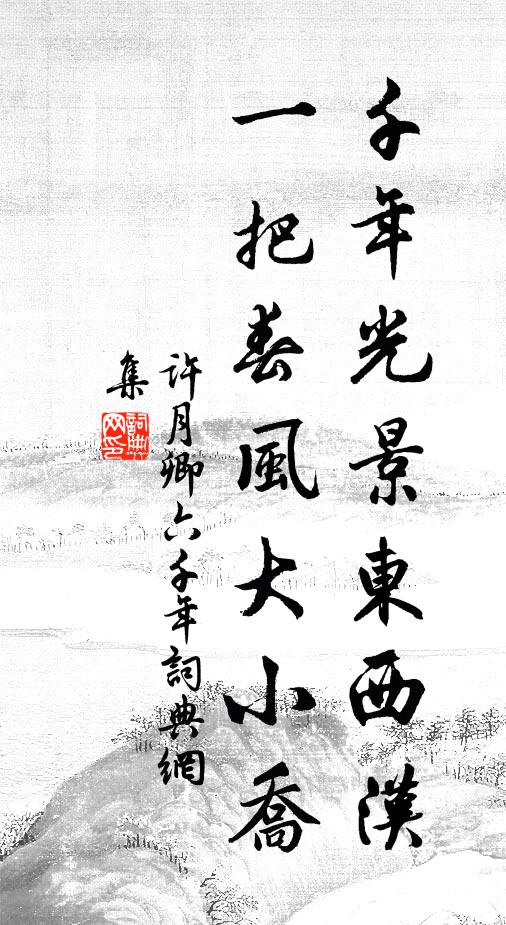 千年光景東西漢
一把春風大小喬
許月卿六千年詞典網
集
詞典網印